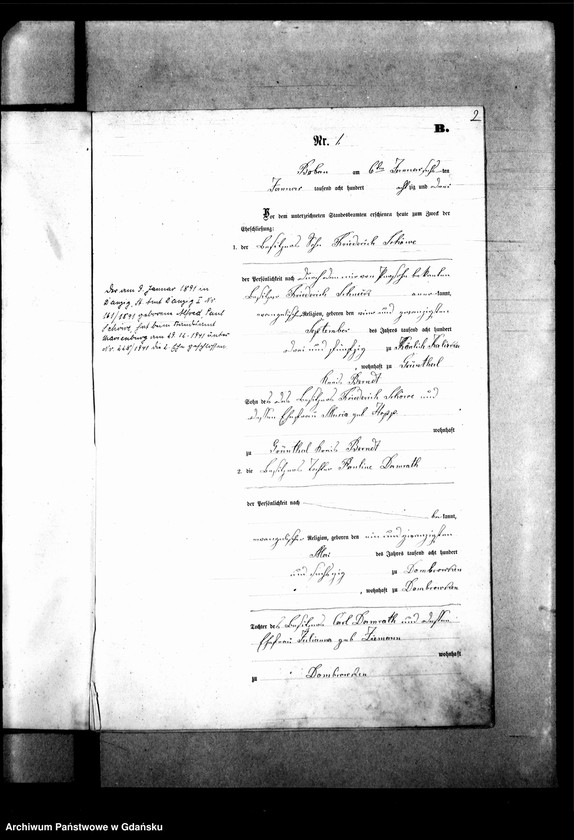 2
B.
Nr. 1.
am 6ten Januar den
Januar tausend acht hundert achtzig und drei
Vor dem unterzeichneten Standesbeamten erschienen heute zum Zweck der
Eheschließung:
1. der Besitzer Sohn Friedrich
der Persönlichkeit nach durch den mir von Person bekannten
Besitzer Friedrich anerkannt,
evangelischer Religion, geboren den vier und zwanzigsten
September des Jahres tausend acht hundert
drei und fünfzig zu
, wohnhaft zu Grünthal
Kreis Berendt
Sohn des Besitzers Friedrich und
dessen Ehefrau Maria geb
wohnhaft
zu Grünthal Kreis Berendt
2. die Besitzers Tochter Pauline Damrath
der Persönlichkeit nach
bekannt,
evangelischer Religion, geboren den ein und zwanzigsten
Mai des Jahres tausend acht hundert
und sechszig zu Dombrowken
, wohnhaft zu Dombrowken
Tochter des Besitzers Carl Damrath und dessen
Ehefrau Julianna geb Ziemann
wohnhaft
zu Dombrowken
Der am 9. Januar 1891 in
Danzig, St. Amt Danzig I Nr
161/1891 geborene Alfred Paul
hat beim Standesamt
Marienburg am 29.12.1941 unter
Nr. die 2. Ehe geschlossen
Archiwum Państwowe w Gdańsku